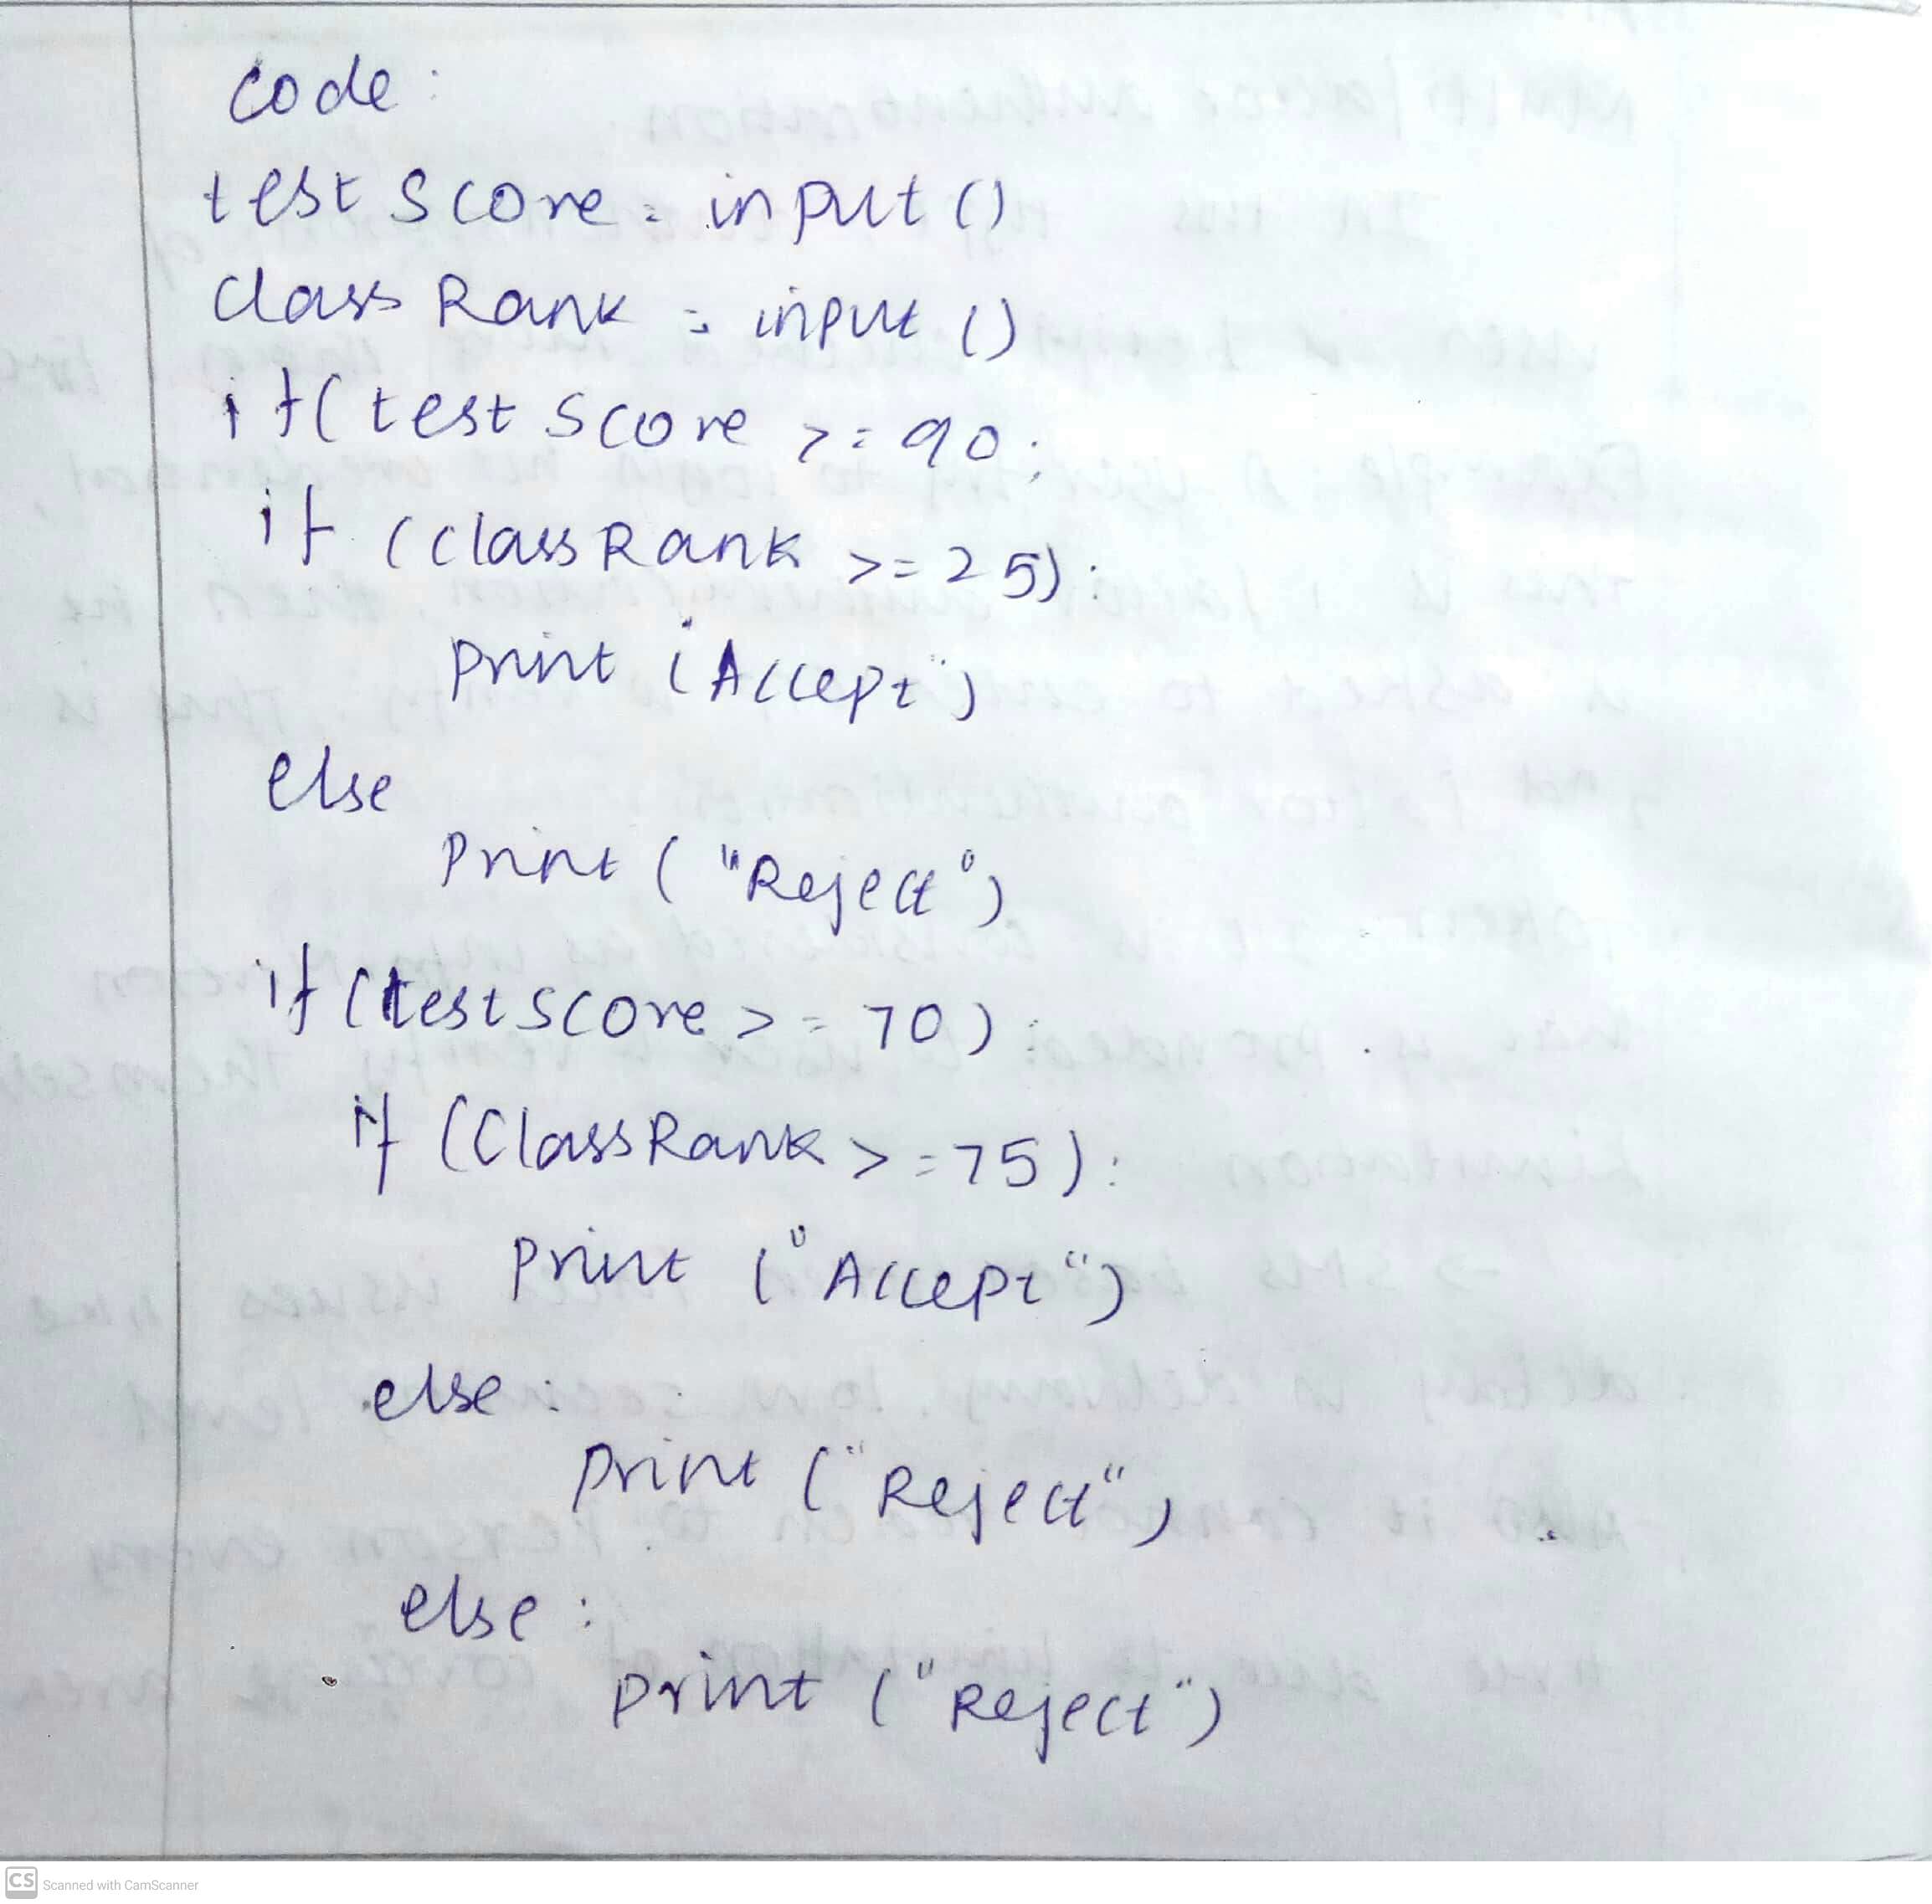 code:
test Score = input ()
class Rank = input ()
if( test Score >= 90:
if (class Rank >= 25):
print (Accept")
else
print ( "Reject")
if (testscore >= 70):
if (Class Rank >= 75):
print ("Accept")
else:
print ("Reject")
else:
print ("Reject")
CS Scanned with CamScanner